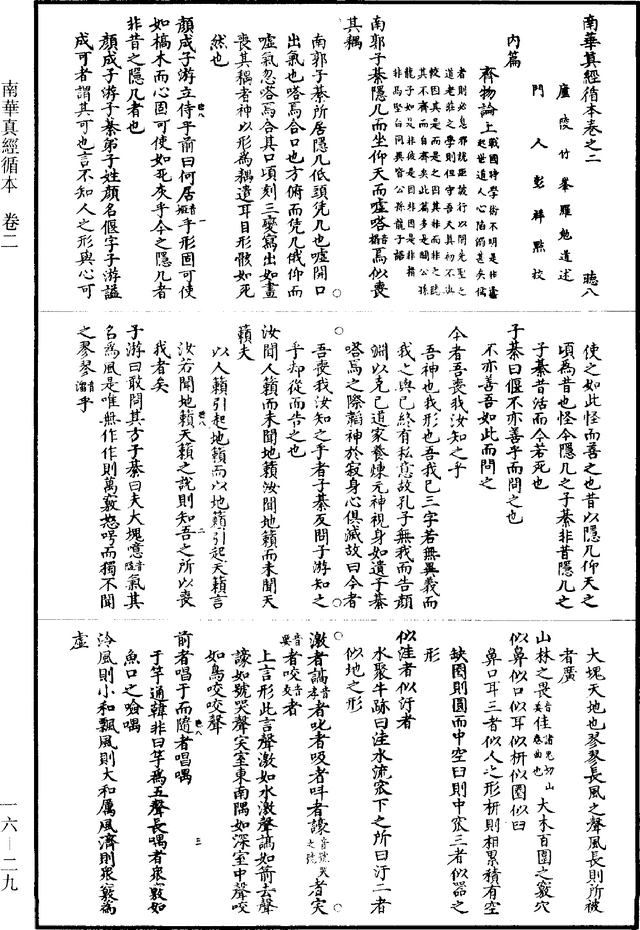 南華真經循本卷之二
盧陵竹峯羅勉道述　聽八
門人彭祥點校
內篇
齊物論上戰國時學術不明是非蠭起世道人心陷溺甚矣儒
者則必息邪說距詖行以閑先聖之道老莊之學則但守吾天其初不與
較因其是而是之因其非而非之聽其不齊而自齊矣此篇多是闢公孫
龍子如是非彼是因非因是非指非馬堅白同異皆公孫龍子語
南郭子綦隱几而坐仰天而噓嗒音榻焉似喪
其耦
南郭子綦所居隱几低頭凭几也噓開口
出氣也嗒焉合口也方俯而凭几俄仰而
噓氣忽嗒焉合其口頃刻三變寫出如畫
喪其耦者神以形為耦遺耳目形骸如死
然也
顏成子游立侍乎前曰何居音姬乎形固可使
如槁木而心固可使如死灰乎今之隱几者
非昔之隱几者也
顏成子游子綦弟子姓顏名偃字子游諡
成可者謂其可也言不知人之形與心可
使之如此怪而喜之也昔以隱几仰天之
頃為昔也怪今隱几之子綦非昔隱几之
子綦昔活而今若死也
子綦曰偃不亦善乎而問之也
不亦善吾如此而問之
今者吾喪我汝知之乎
吾神也我形也吾我已三字若無異義而
我之與已終有私意故孔子無我而告顏
淵以克己道家養煉元神視身如遺子綦
嗒焉之際韜神於寂身心俱滅故曰今者
吾喪我汝知之乎者子綦反問子游知之
乎却從而告之也
汝聞人籟而未聞地籟汝聞地籟而未聞天
籟夫
以人籟引起地籟而以地籟引起天籟言
汝若聞地籟天籟之說則知吾之所以喪
我者矣
子游曰敢問其方子綦曰夫大塊噫音隘氣其
名為風是唯無作作則萬竅怒呺而獨不聞
之翏翏音溜乎
大塊天地也翏翏長風之聲風長則所被
者廣
山林之畏佳大木百圍之竅穴
似鼻似口似耳似枅似圈似臼
鼻口耳三者似人之形枅則相累積有空
缺圈則圓而中空臼則中窊三者似器之
形
似洼者似汙者
水聚牛跡曰洼水流窊下之所曰汙二者
似地之形
激者謞音孝者叱者吸者叫者譹者宎
者咬者
上言形此言聲激如水激聲謞如箭去聲
譹如號哭聲宎室東南隅如深室中聲咬
如鳥咬咬聲
前者唱于而隨者唱喁
于竽通韓非曰竽為五聲長喁者眾竅如
魚口之噞喁
泠風則小和飄風則大和厲風濟則眾竅為
虛
南華真經循本　卷二
一六—二九